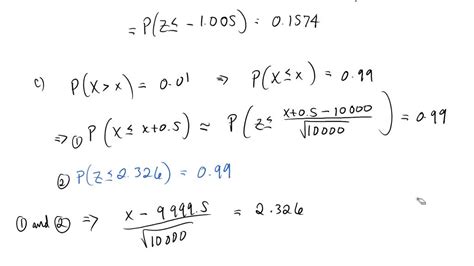 = P(Z ≤ - 1.005) = 0.1574
c) P(X > x) = 0.01 ⇒ P(X ≤ x) = 0.99
⇒ ① P(X ≤ x+0.5) ≈ P(Z ≤ (x+0.5-10000)/√10000) = 0.99
② P(Z ≤ 2.326) = 0.99
① and ② ⇒ (x - 9999.5)/√10000 = 2.326